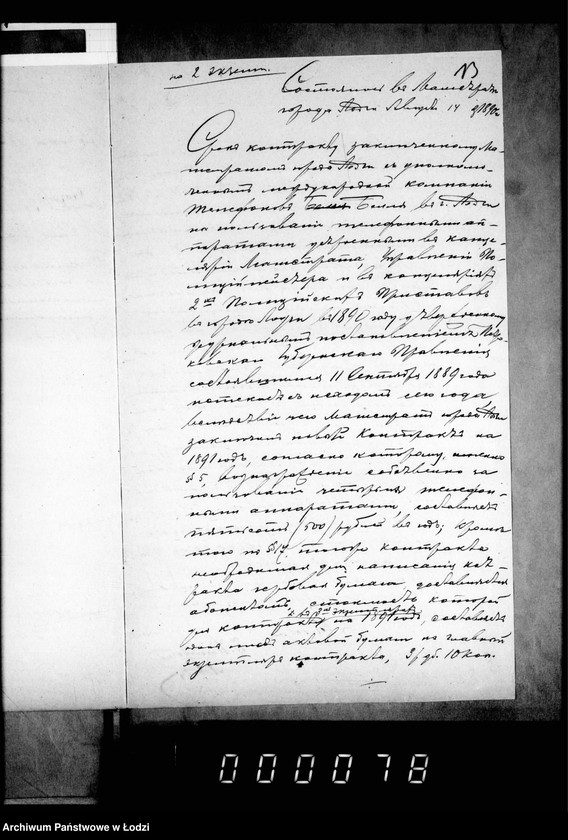 по 2 экземп.
Состоялось въ Магистратѣ
города Лодзи Августа 14 дня 1890 г.
Срокъ контракту заключенному Ма-
гистратомъ города Лодзи съ уполномо-
ченнымъ международной компаніи
Телефоновъ Белля въ г. Лодзи
на пользованіе телефонными ап-
паратами учрежденными въ канце-
ляріи Магистрата, Управленіи По-
лиціймейстера и въ канцеляріяхъ
2хъ Полицейскихъ Приставовъ
въ городѣ Лодзи въ 1890 году утвержденному
журнальнымъ постановленіемъ Петро-
ковскаго Губернскаго Правленія
состоявшимся 11 Сентября 1889 года
истекаетъ съ исходомъ сего года,
вслѣдствіе чего Магистратъ города Лодзи
заключилъ новый Контрактъ на
1891 годъ, согласно которому,
§ 5, вознагражденіе собственно за
пользованіе четырьмя телефон-
ными аппаратами, составляетъ
пятьсотъ (500) рублей въ годъ; кромѣ
того по § 17 того контракта
необходимая для написанія конт-
ракта гербовая бумага доставляется
абонентомъ, стоимость которой
для контракта на 1891 годъ, составляетъ
актовой бумаги на главный
экземпляръ контракта, 3 руб. 10 коп.
000078
Archiwum Państwowe w Łodzi